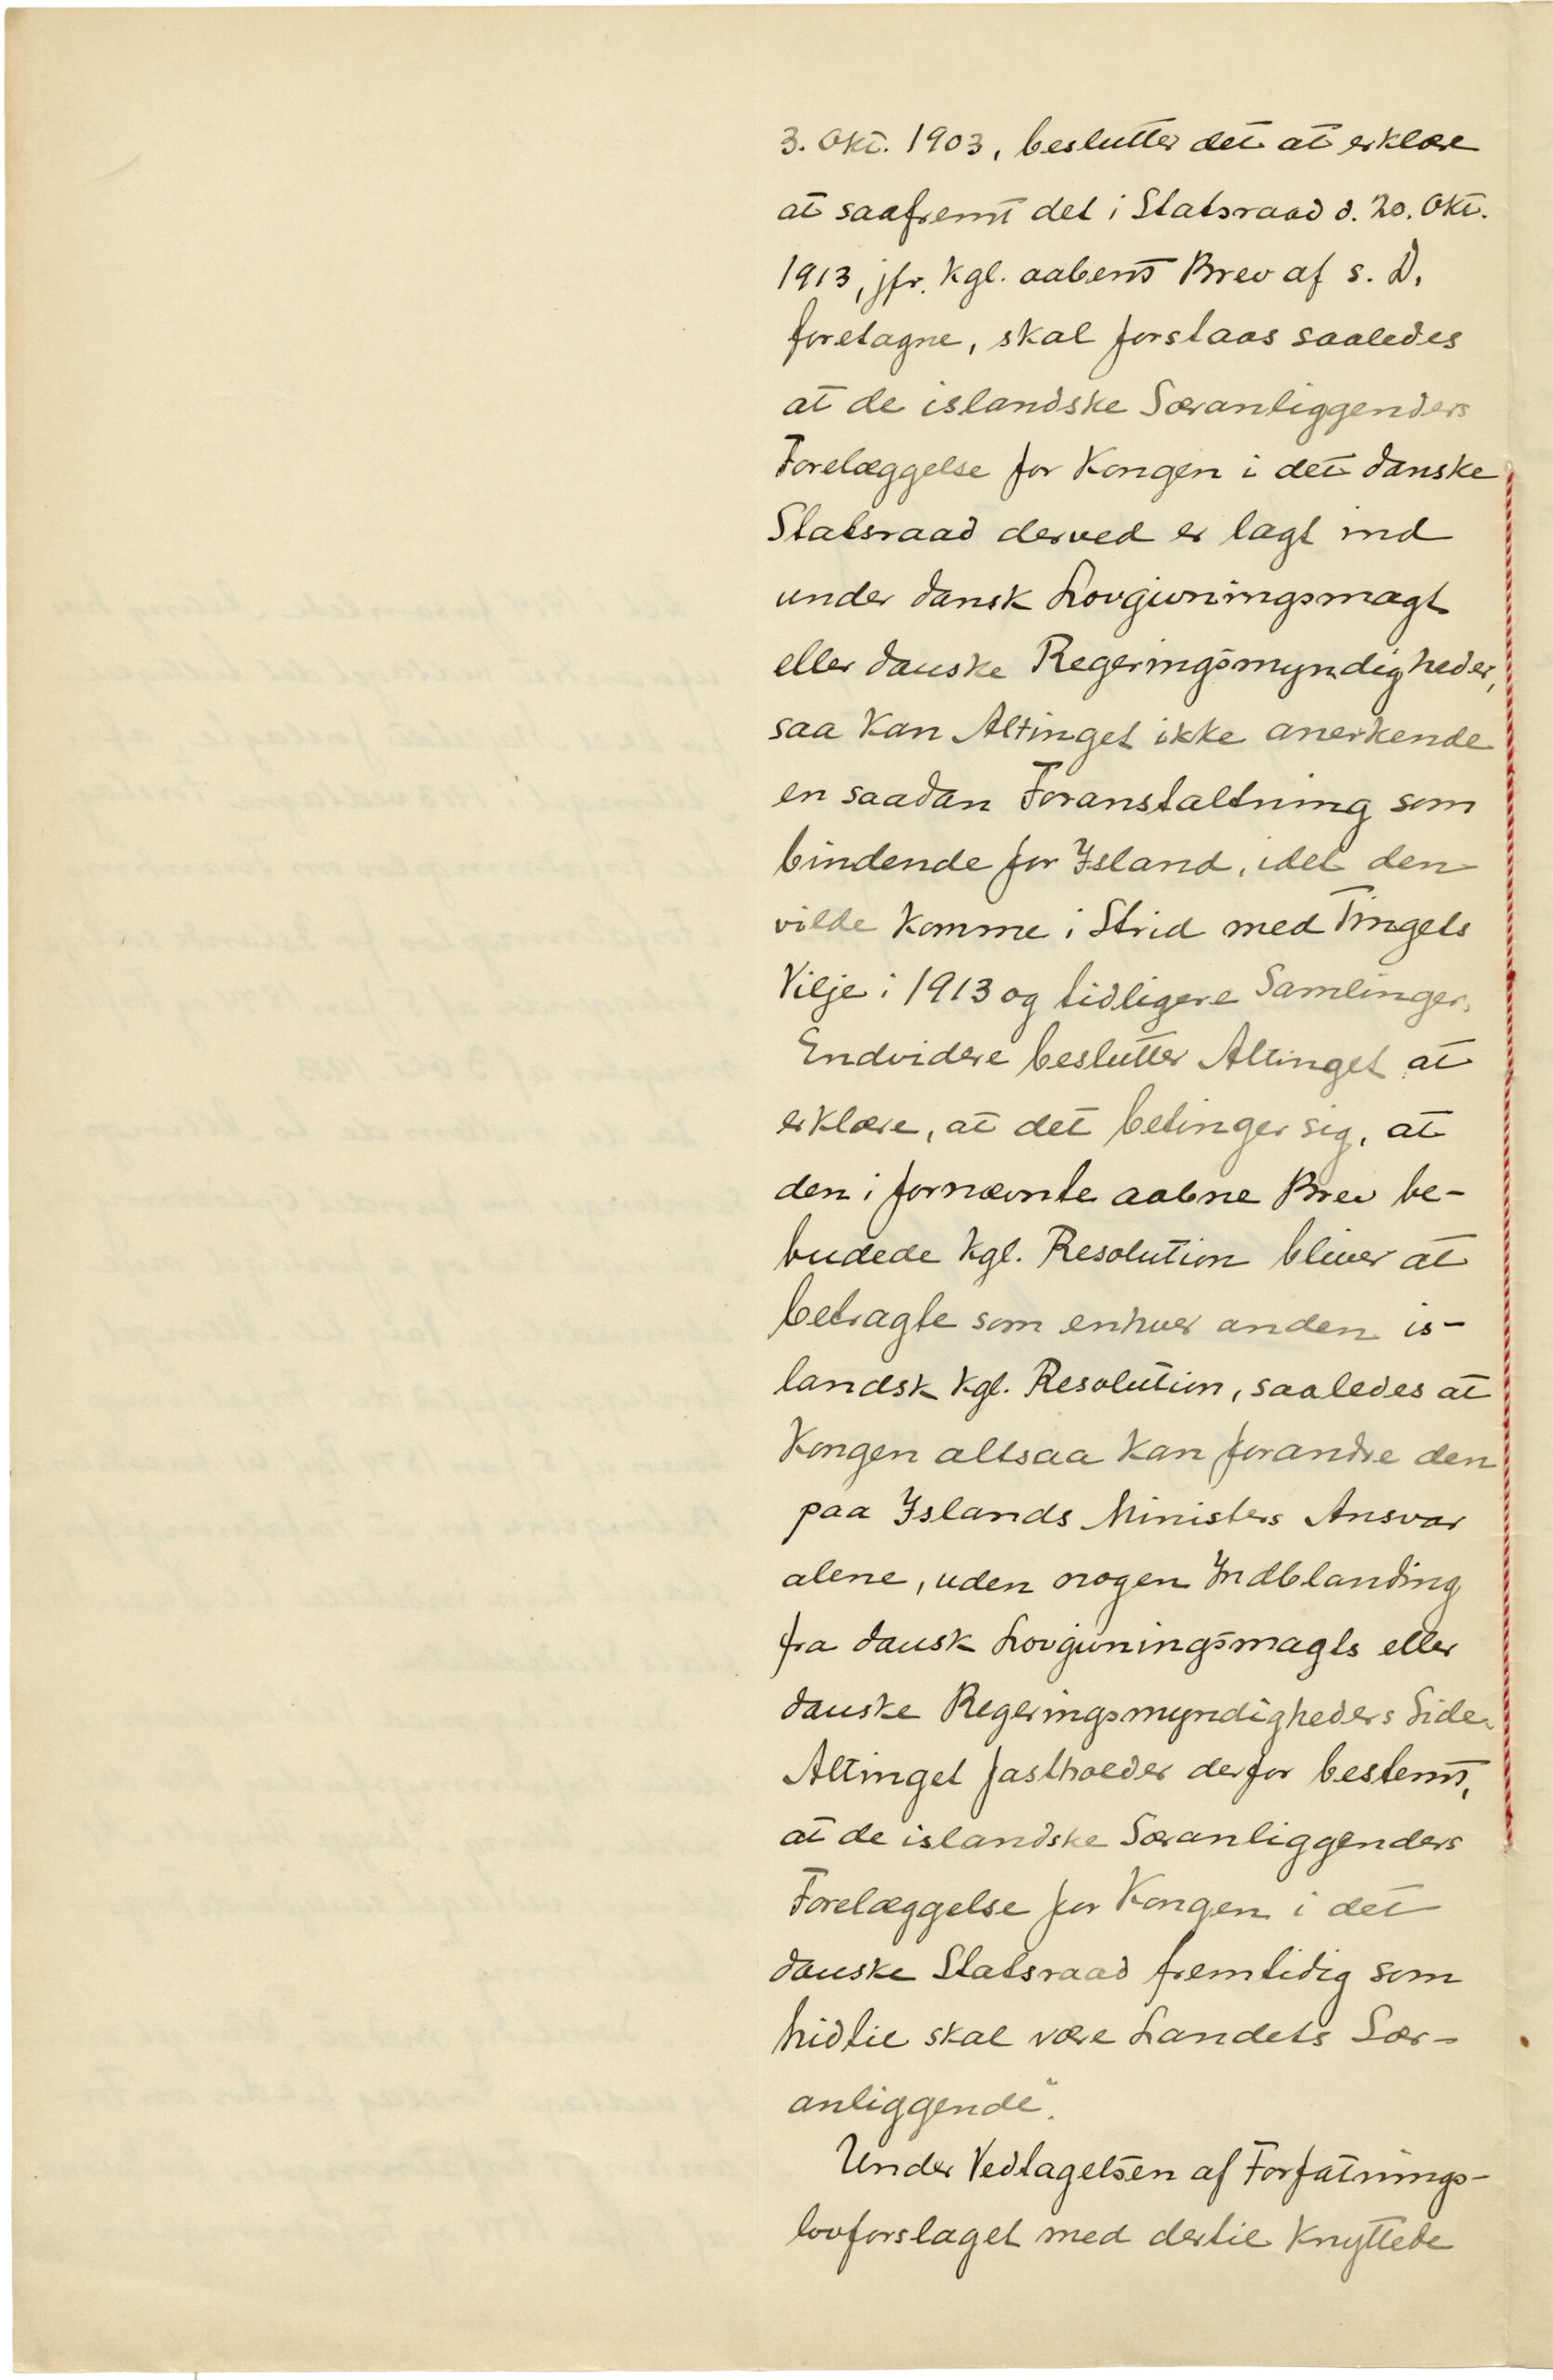 3. Okt. 1903, beslutter det at erklære
at saafremt det i Statsraad d. 20. Okt.
1913, jfr. kgl. aabent Brev af s. D.
foretagne, skal forstaas saaledes
at de islandske Særanliggenders
Forelæggelse for Kongen i det danske
Statsraad derved er lagt ind
under dansk Lovgivningsmagt
eller danske Regeringsmyndigheder,
saa kan Altinget ikke anerkende
en saadan Foranstaltning som
bindende for Island, idet den
vilde komme i Strid med Tingets
Vilje i 1913 og tidligere Samlinger.
Endvidere beslutter Altinget at
erklære, at det betinger sig, at
den i fornævnte aabne Brev be-
budede kgl. Resolution bliver at
betragte som enhver anden is-
landsk kgl. Resolution, saaledes at
Kongen altsaa kan forandre den
paa Islands Ministers Ansvar
alene, uden nogen Indblanding
fra dansk Lovgivningsmagts eller
danske Regeringsmyndigheders Side.
Altinget fastholder derfor bestemt,
at de islandske Særanliggenders
Forelæggelse for Kongen i det
danske Statsraad fremtidig som
hidtil skal være Landets Sær-
anliggende".
Under Vedtagelsen af Forfatnings-
lovforslaget med dertil knyttede